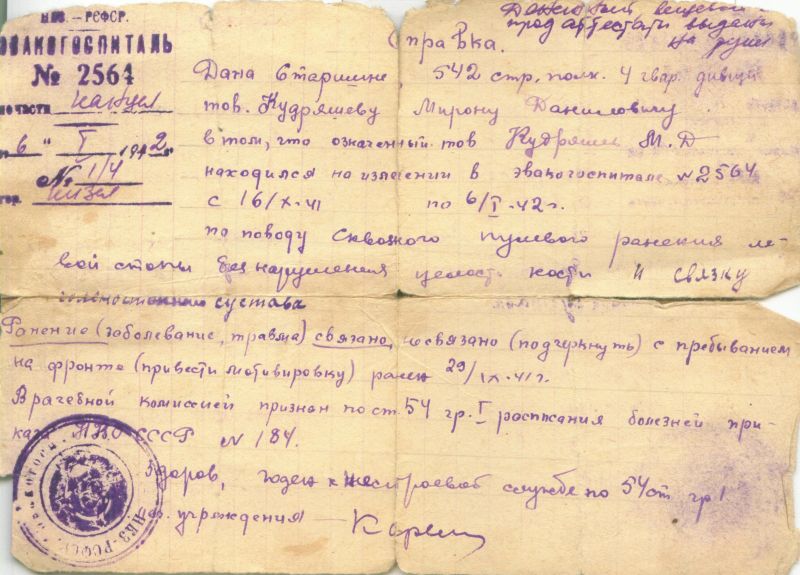 НКЗ.—РСФСР.
ЭВАКОГОСПИТАЛЬ
№ 2564
по части канцел
"6" I 1942 г.
№ 1/4
гор. Кизел
Денежный вещевой и
прод аттестаты выданы
на руки
Справка.
Дана Старшине 542 стр, полк. 4 гвар. дивизи
тов. Кудряшеву Мирону Даниловичу
в том, что означенный тов Кудряшев М. Д
находился на излечении в эвакогоспитале № 2564
с 16/X-41 по 6/I-42 г.
по поводу Сквозного пулевого ранения ле-
вой стопы без нарушения целост. кости и связку
голеностопного сустава
Ранение (заболевание, травма) связано, не связано (подчеркнуть) с пребыванием
на фронте (привести мотивировку) ранен 29/IX-41 г.
Врачебной комиссией признан по ст. 54 гр. I расписания болезней при-
каза НКО СССР № 184.
Здоров, годен к нестроевой службе по 54 ст гр I
учреждения —
НКЗ-РСФСР